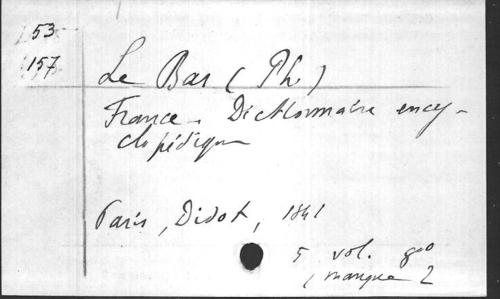 53
157
Le Bas (Ph.)
France. Dictionnaire ency-
clopédique
Paris, Didot, 1841
5 vol. 8oo
(manque 2